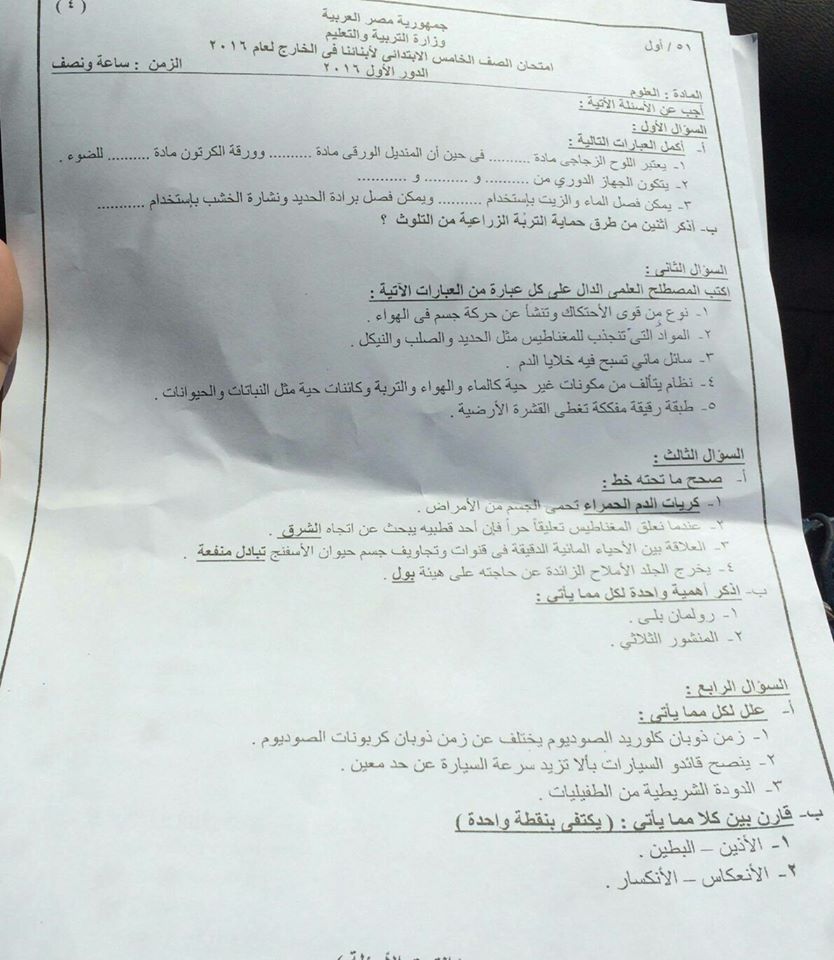 (٤)
جمهورية مصر العربية
وزارة التربية والتعليم
٥١ / أول
امتحان الصف الخامس الابتدائى لأبنائنا فى الخارج لعام ٢٠١٦
الدور الأول ٢٠١٦
الزمن : ساعة ونصف
المادة : العلوم
أجب عن الأسئلة الآتية :
السؤال الأول :
أ- أكمل العبارات التالية :
١- يعتبر اللوح الزجاجى مادة .......... فى حين أن المنديل الورقى مادة .......... وورقة الكرتون مادة .......... للضوء .
٢- يتكون الجهاز الدوري من .......... و .......... و ..........
٣- يمكن فصل الماء والزيت بإستخدام .......... ويمكن فصل برادة الحديد ونشارة الخشب بإستخدام ..........
ب- أذكر أثنين من طرق حماية التربة الزراعية من التلوث ؟
السؤال الثانى :
اكتب المصطلح العلمى الدال على كل عبارة من العبارات الآتية :
١- نوع من قوى الأحتكاك وتنشأ عن حركة جسم فى الهواء .
٢- المواد التى تنجذب للمغناطيس مثل الحديد والصلب والنيكل .
٣- سائل مائي تسبح فيه خلايا الدم .
٤- نظام يتألف من مكونات غير حية كالماء والهواء والتربة وكائنات حية مثل النباتات والحيوانات .
٥- طبقة رقيقة مفككة تغطى القشرة الأرضية .
السؤال الثالث :
أ- صحح ما تحته خط :
١- كريات الدم الحمراء تحمى الجسم من الأمراض .
٢- عندما نعلق المغناطيس تعليقاً حراً فإن أحد قطبيه يبحث عن اتجاه الشرق .
٣- العلاقة بين الأحياء المائية الدقيقة فى قنوات وتجاويف جسم حيوان الأسفنج تبادل منفعة .
٤- يخرج الجلد الأملاح الزائدة عن حاجته على هيئة بول .
ب- اذكر أهمية واحدة لكل مما يأتى :
١- رولمان بلى .
٢- المنشور الثلاثي .
السؤال الرابع :
أ- علل لكل مما يأتى :
١- زمن ذوبان كلوريد الصوديوم يختلف عن زمن ذوبان كربونات الصوديوم .
٢- ينصح قائدو السيارات بألا تزيد سرعة السيارة عن حد معين .
٣- الدودة الشريطية من الطفيليات .
ب- قارن بين كلا مما يأتى : ( يكتفى بنقطة واحدة )
١- الأذين – البطين .
٢- الأنعكاس – الأنكسار .